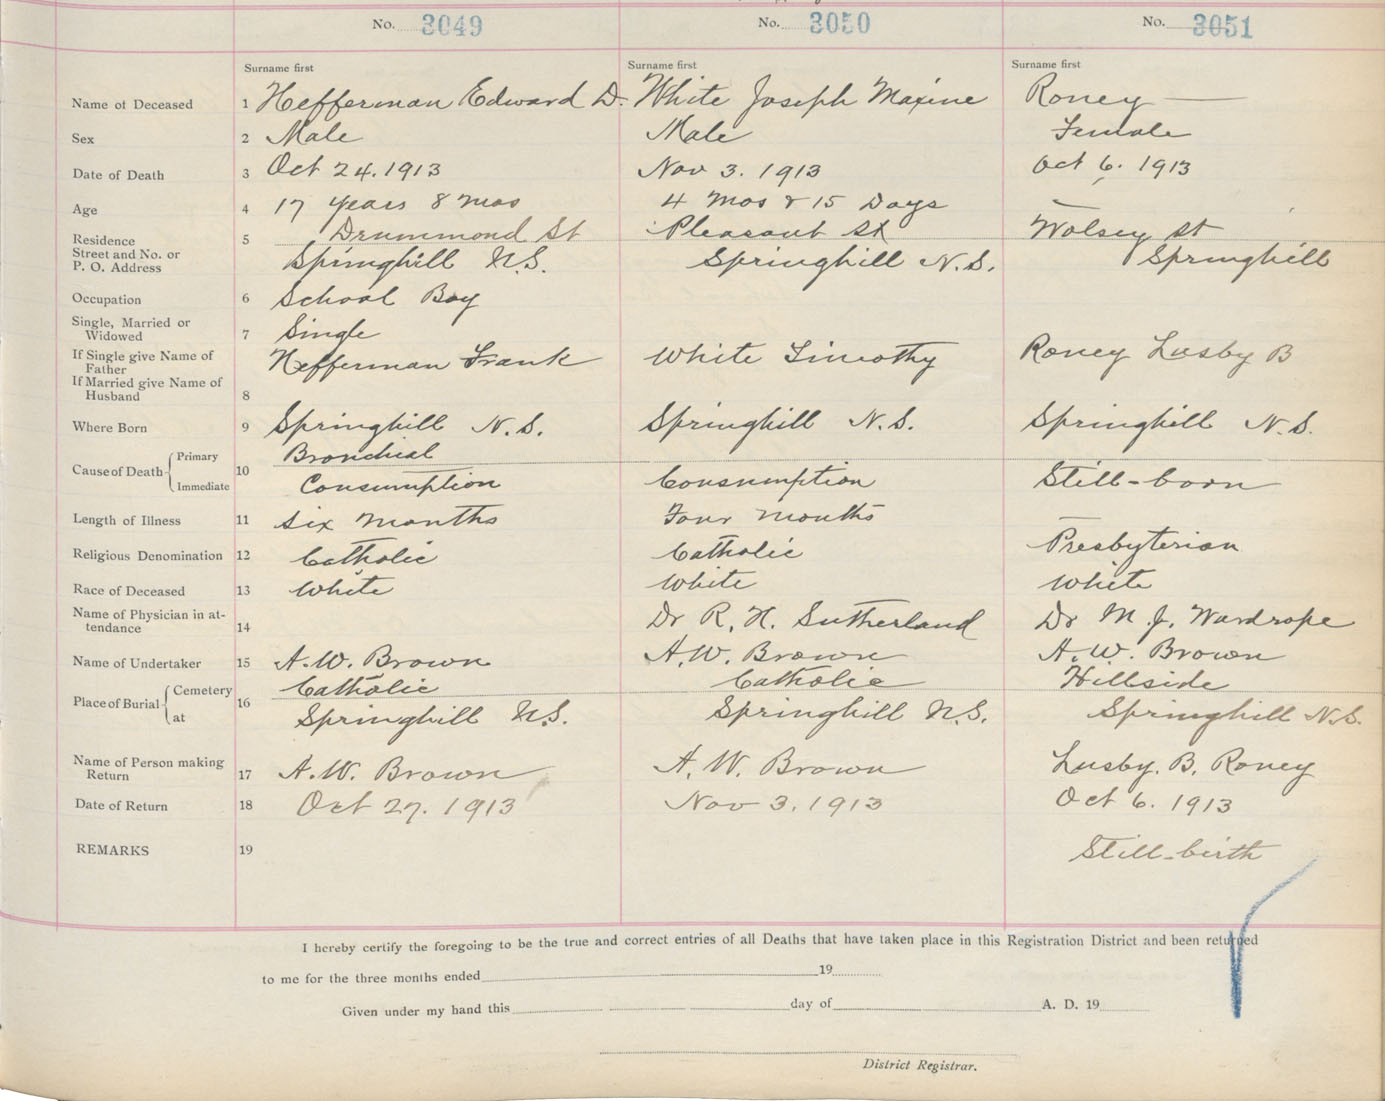 No. 3049 No. 3050 No. 3051
Surname first Surname first Surname first
Name of Deceased 1 Hefferman Edward D. White Joseph Maxine Roney —
Sex 2 Male Male Female
Date of Death 3 Oct 24. 1913 Nov 3. 1913 Oct 6. 1913
Age 4 17 years 8 mos 4 mos & 15 Days —
Residence 5 Drummond St Pleasant St Wolsey St
Street and No. or
P. O. Address Springhill N.S. Springhill N.S. Springhill
Occupation 6 School Boy
Single, Married or
Widowed 7 Single
If Single give Name of
Father Hefferman Frank White Timothy Roney Lusby B
If Married give Name of
Husband 8
Where Born 9 Springhill N.S. Springhill N.S. Springhill N.S.
Cause of Death Primary 10 Bronchial
Immediate Consumption Consumption Still-born
Length of Illness 11 Six Months Four Months —
Religious Denomination 12 Catholic Catholic Presbyterian
Race of Deceased 13 White White White
Name of Physician in at-
tendance 14 Dr R. H. Sutherland Dr M. J. Wardrope
Name of Undertaker 15 A.W. Brown A.W. Brown A.W. Brown
Place of Burial Cemetery 16 Catholic Catholic Hillside
at Springhill N.S. Springhill N.S. Springhill N.S.
Name of Person making
Return 17 A.W. Brown A.W. Brown Lusby. B. Roney
Date of Return 18 Oct 27. 1913 Nov 3. 1913 Oct 6. 1913
REMARKS 19 Still-birth
I hereby certify the foregoing to be the true and correct entries of all Deaths that have taken place in this Registration District and been returned
to me for the three months ended 19
Given under my hand this day of A. D. 19
District Registrar.